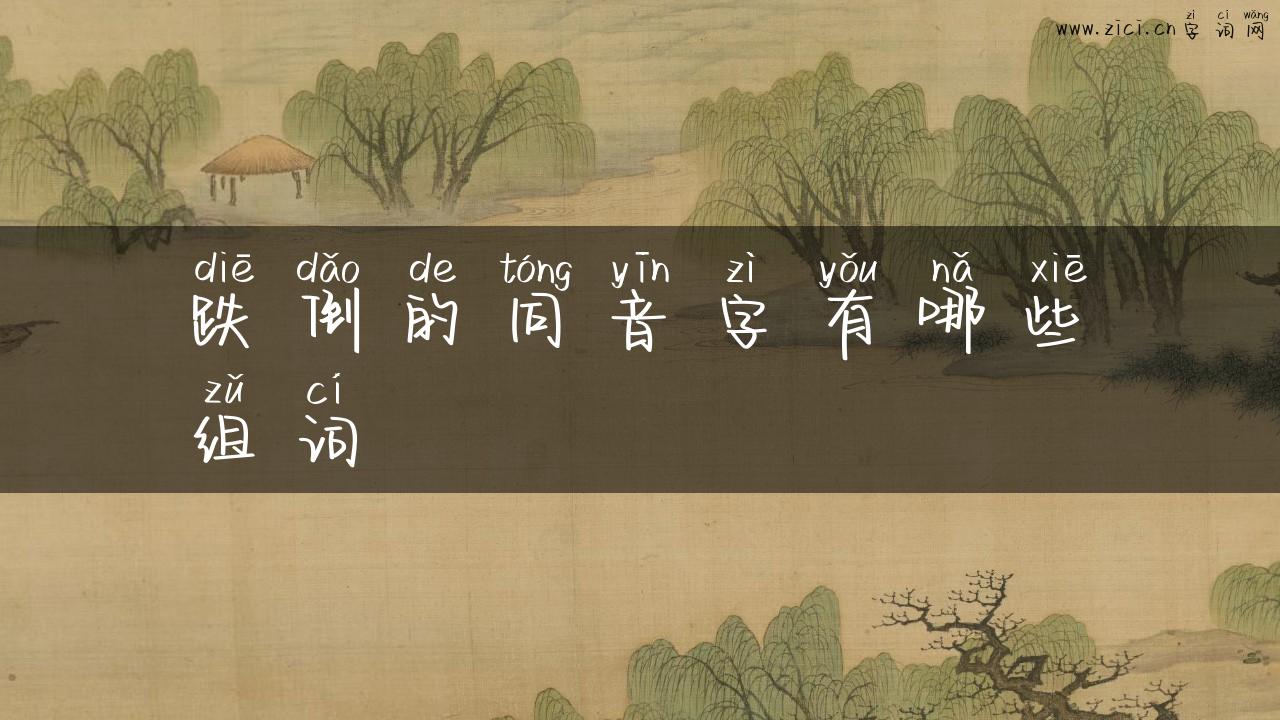 zì cí wǎng
www.zici.cn 字词网
diē dǎo de tóng yīn zì yǒu nǎ xiē
跌倒的同音字有哪些
zǔ cí
组词